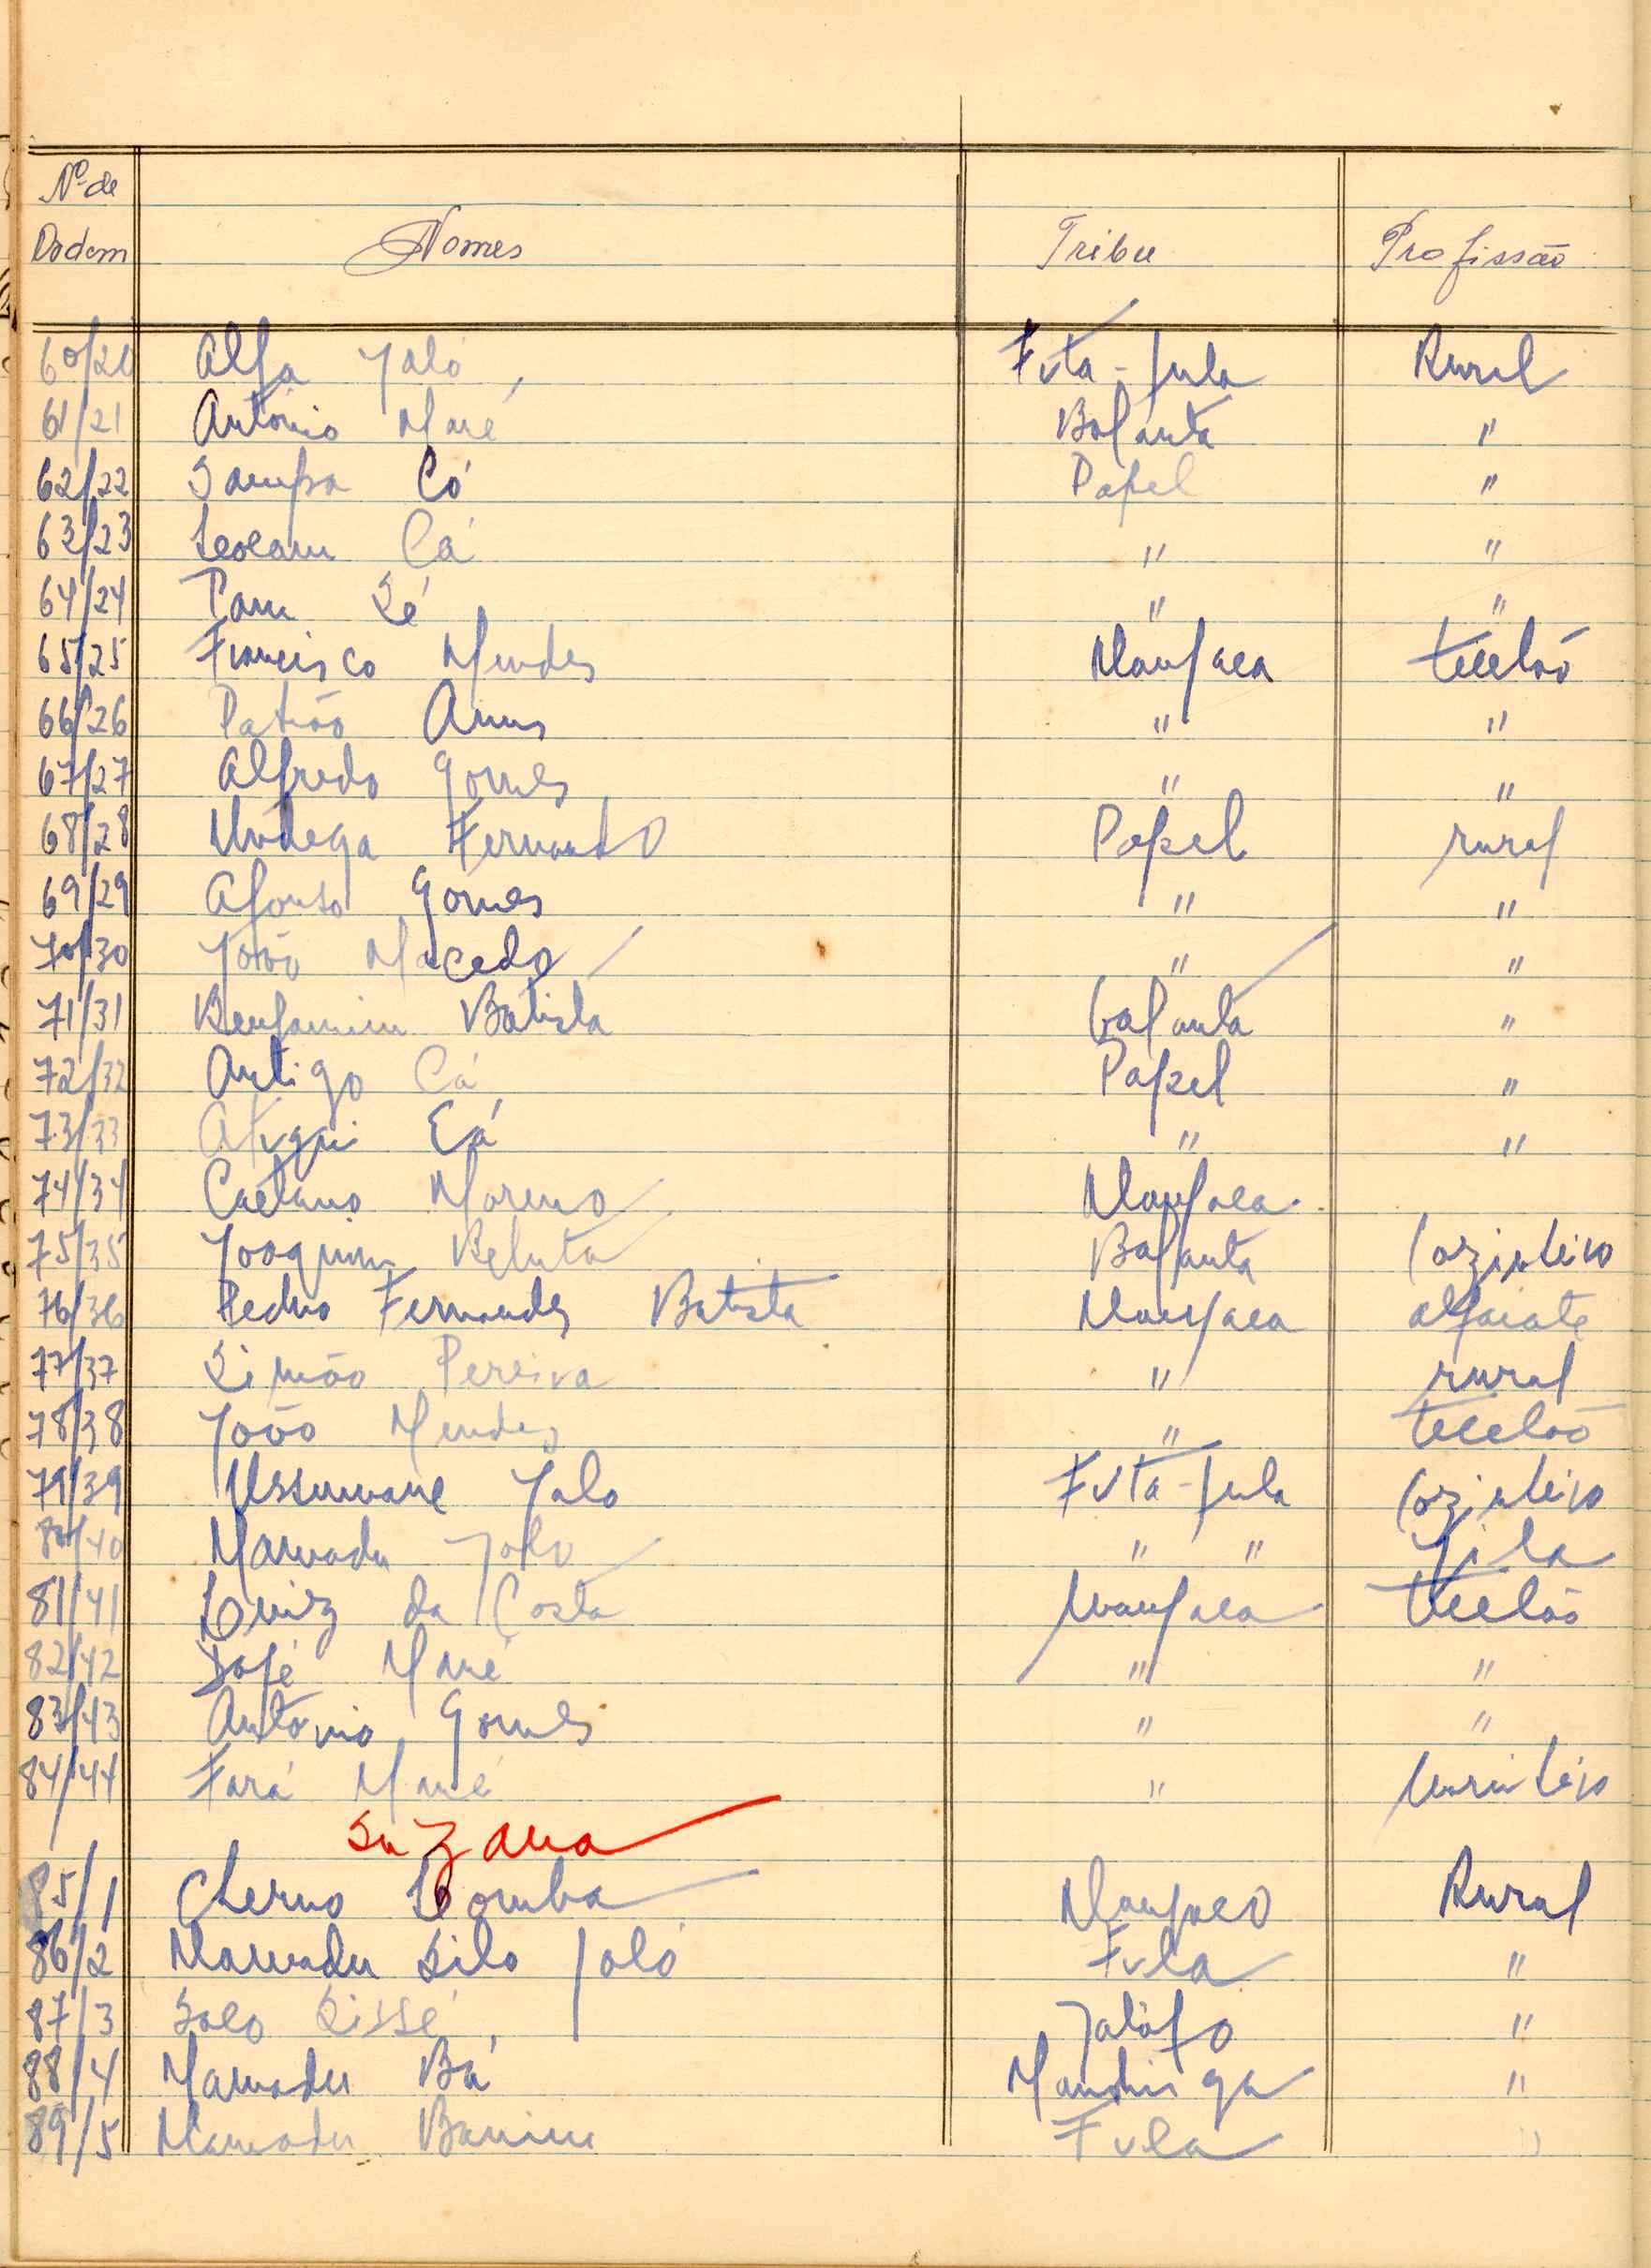 Nº de
Ordem Nomes Tribu Profissão
60/20 Alfa Jaló Futa-fula Rural
61/21 António Mané Balanta "
62/22 Sampa Có Papel "
63/23 Cá " "
64/24 Pam Sé " "
65/25 Francisco Mendes Manjaca tecelão
66/26 Patrão " "
67/27 Alfredo Gomes " "
68/28 Fernando Papel rural
69/29 Afonso Gomes " "
70/30 João Macedo " "
71/31 Benjamim Batista balanta "
72/32 Antigo Cá Papel "
73/33 Cá " "
74/34 Caetano Moreno Manjaca
75/35 Joaquim Balanta Cozinheiro
76/36 Pedro Fernandes Batista Manjaca alfaiate
77/37 Simão Pereira " rural
78/38 João Mendes " tecelão
79/39 Ussumane Jalo Futa-fula Cozinheiro
80/40 Mamadu Jalo " " Gila
81/41 Luiz da Costa Manjaca tecelão
82/42 José Mané " "
83/43 António Gomes " "
84/44 Fará Mané " Marinheiro
Suzana
85/1 Cherno Manjaco Rural
86/2 Mamadu Silo Jaló Fula "
87/3 Sissé Jalófo "
88/4 Mamadu Bá Mandinga "
89/5 Mamadu Fula "